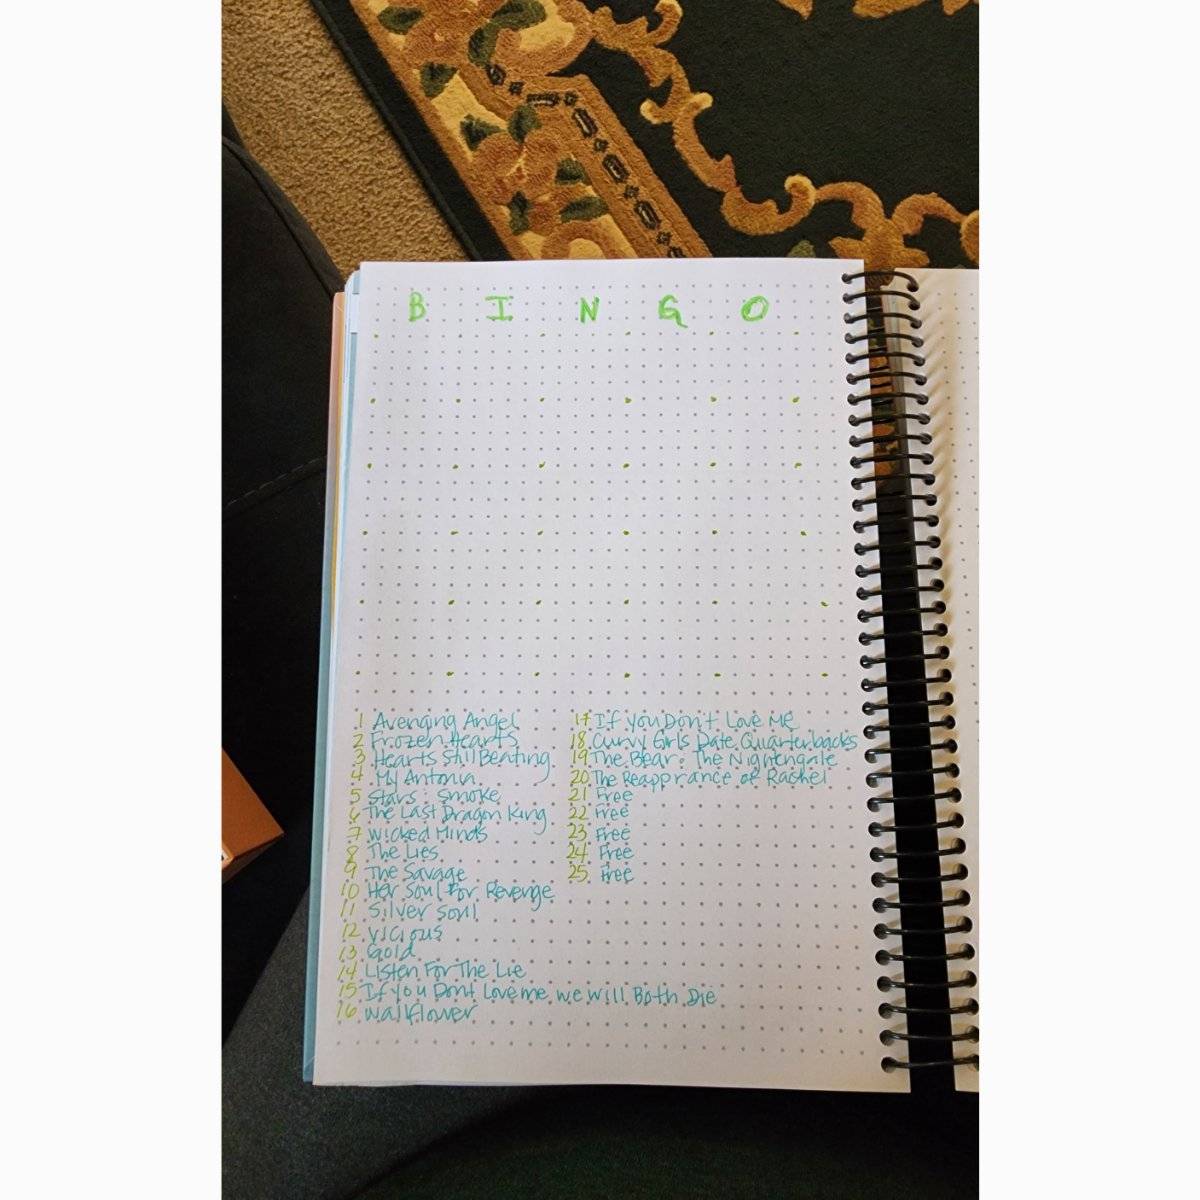 B I N G O
1 Avenging Angel
2 Frozen Hearts
3 Hearts Still Beating
4 My Antonia
5 Stars : Smoke
6 The Last Dragon King
7 Wicked Minds
8 The Lies
9 The Savage
10 Her Soul For Revenge
11 Silver Soul
12 Vicious
13 Gold
14 Listen For The Lie
15 If you Dont Love me we will Both Die
16 Wallflower
17 If you Don't Love Me
18 Curvy Girls Date Quarterbacks
19 The Bear : The Nightengale
20 The Reapprance of Rachel
21 Free
22 Free
23 Free
24 Free
25 Free